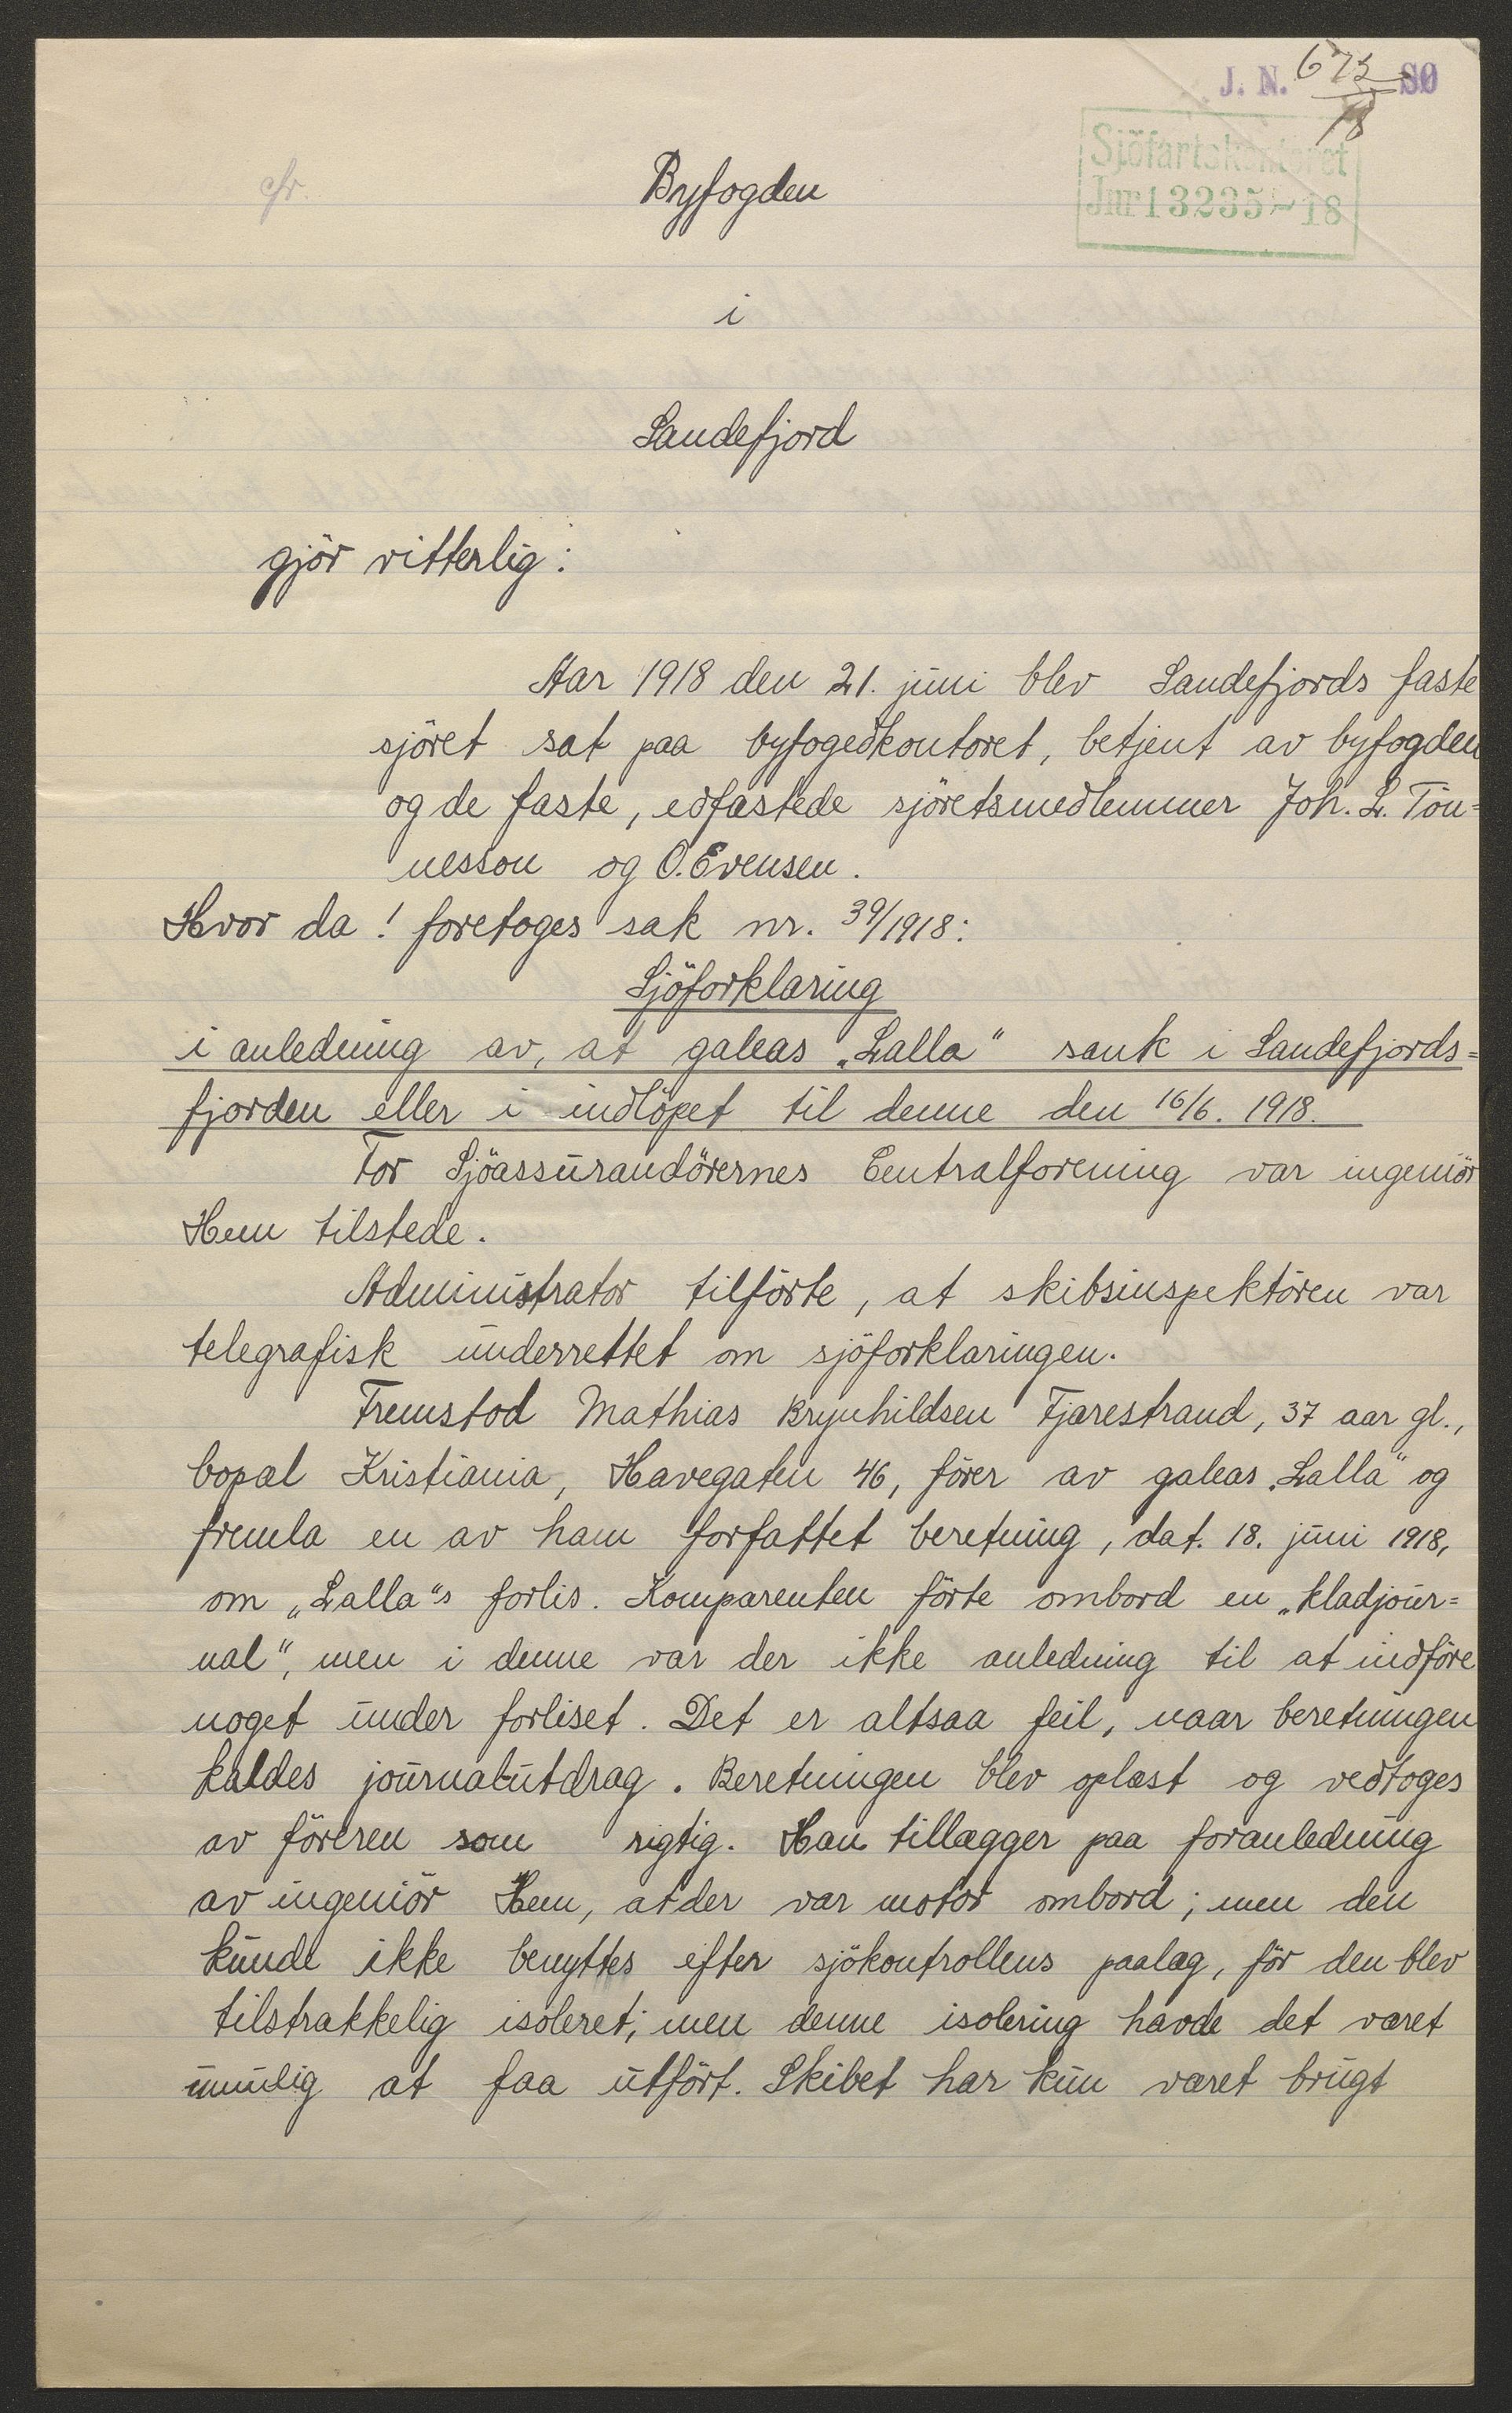 J. N. 675/18 SØ
Sjöfartskontoret
Jnr 13235 - 18
cfr.
Byfogden
i
Sandefjord
gjör vitterlig:
Aar 1918 den 21. juni blev Sandefjords faste
sjöret sat paa byfogedkontoret, betjent av byfogden
og de faste, edfæstede sjöretsmedlemmer Joh. L. Tön=
nesson og O. Evensen.
Hvor da! foretoges sak nr. 39/1918:
Sjöforklaring
i anledning av, at galeas „Lalla“ sank i Sandefjords=
fjorden eller i indlöpet til denne den 16/6. 1918.
For Sjöassurandörernes Centralforening var ingeniör
Hem tilstede.
Administrator tilförte, at skibsinspektören var
telegrafisk underrettet om sjöforklaringen.
Fremstod Mathias Brynhildsen Fjærestrand, 37 aar gl.,
bopæl Kristiania, Havegaten 46, förer av galeas „Lalla“ og
fremla en av ham forfattet beretning, dat. 18. juni 1918,
om „Lalla“s forlis. Komparenten förte ombord en „kladjour=
nal“, men i denne var der ikke anledning til at indföre
noget under forliset. Det er altsaa feil, naar beretningen
kaldes journalutdrag. Beretningen blev oplæst og vedtoges
av föreren som rigtig. Han tillægger paa foranledning
av ingeniör Hem, at der var motor ombord; men den
kunde ikke benyttes efter sjökontrollens paalæg, för den blev
tilstrækkelig isoleret; men denne isolering havde det været
umulig at faa utfört. Skibet har kun været brugt